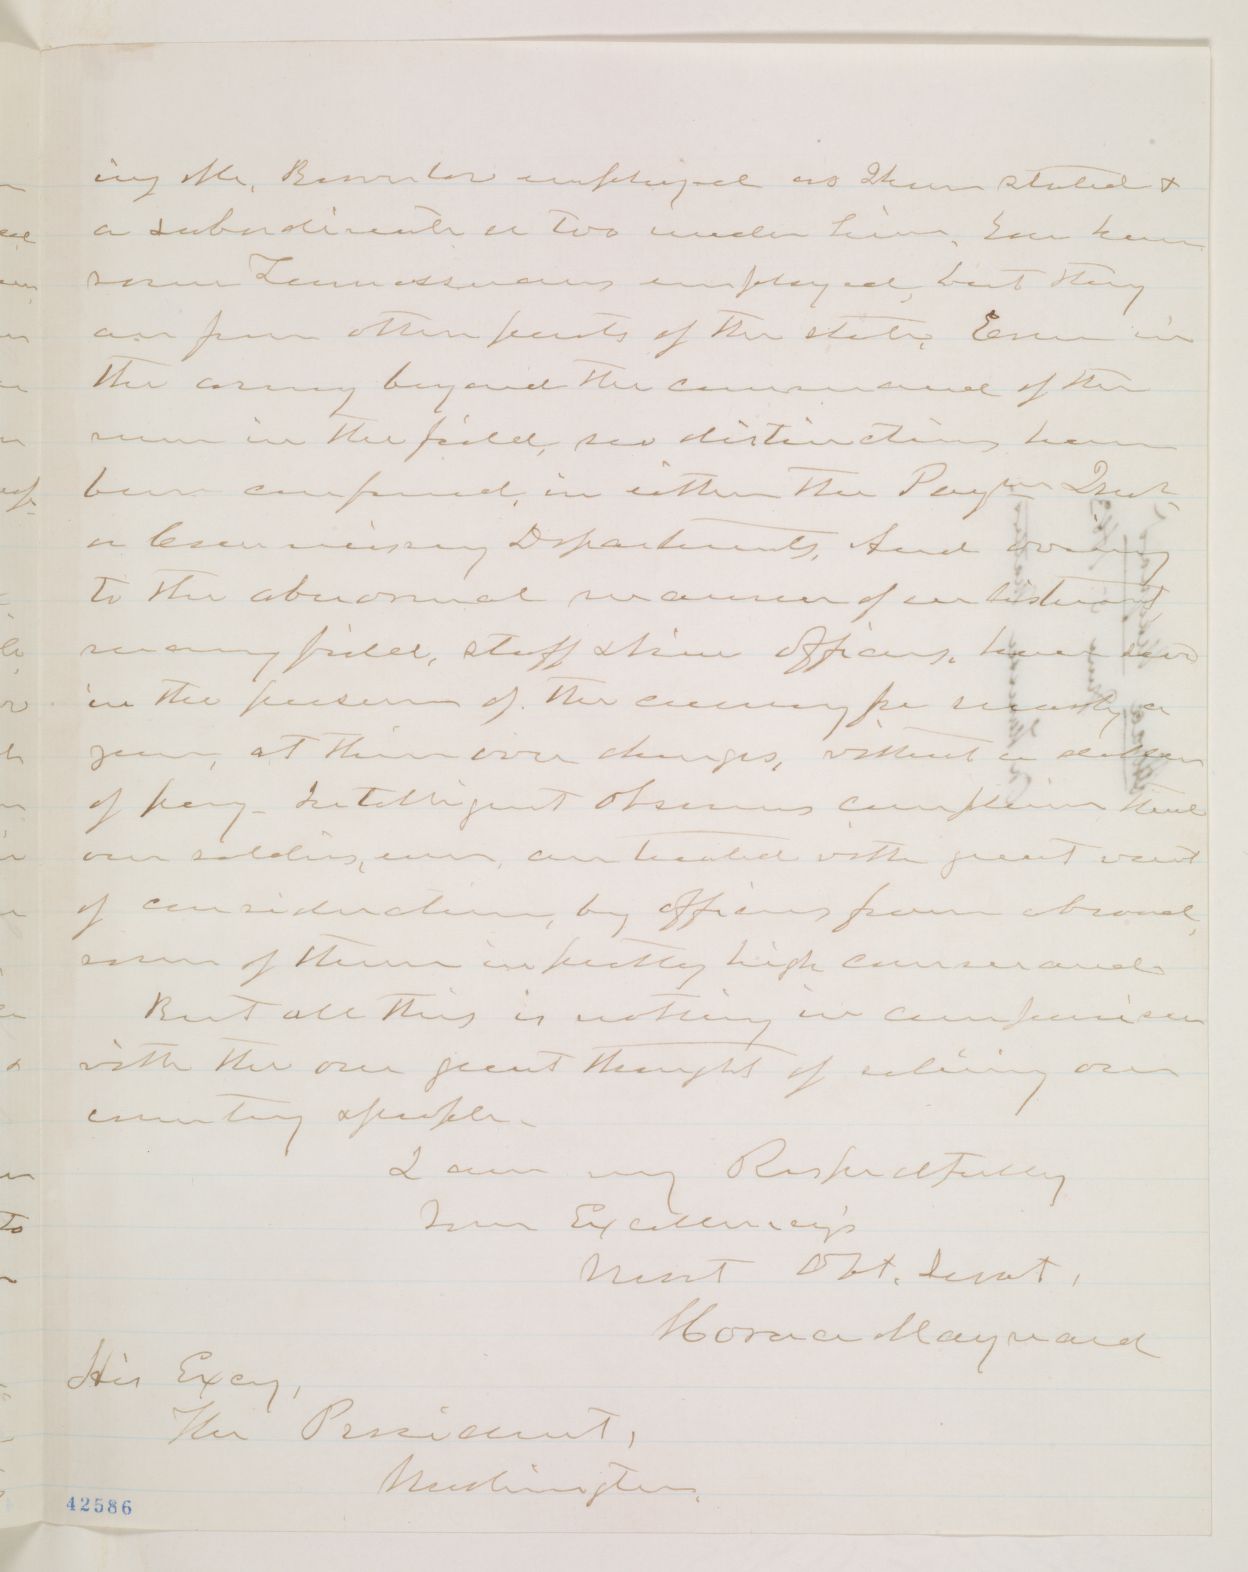 ing Mr. Brownlow employed as I have stated &
a subordinate or two under him. You have
some Tennesseeans employed, but they
are from other parts of the state. Even in
the army beyond the command of the
men in the field, no distinctions have
been conferred, in either the Pay
or Commissary Departments. And owing
to the abnormal manner of enlistment,
many field, staff & line officers, have been
in the presence of the enemy for nearly a
year, at their own charges, without a dollar
of pay - Intelligent observers complain that
our soldiers, even, are treated with great want
of consideration, by officers from abroad,
some of them in pretty high command.
But all this is nothing in comparison
with the one great thought of relieving our
country & people.
I am very Respectfully
Your Excellency's
Most Obt. Servt,
Horace Maynard
His Excy,
The President,
Washington.
42586